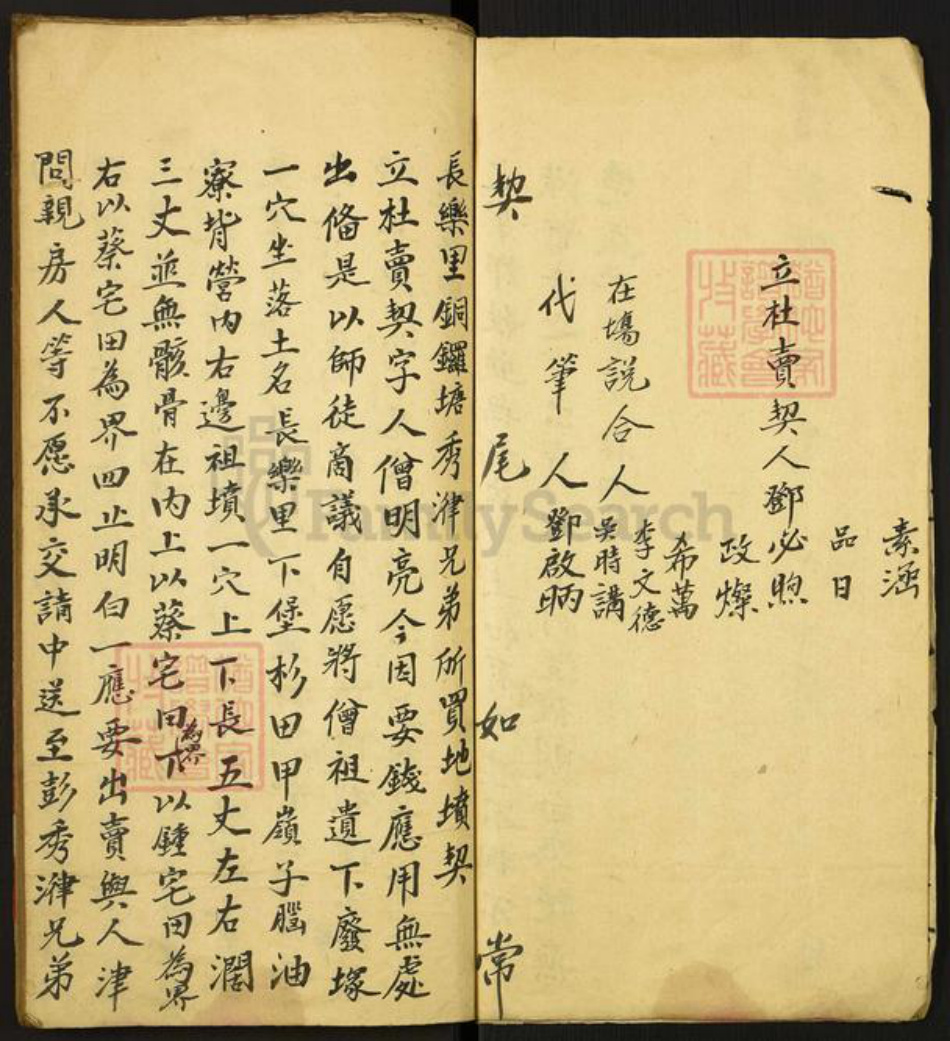 素涵
品日
立杜賣契人鄧必煦
政燦
希萬
在塲説合人李文德
吳時講
代筆人鄧啟昞
契尾如常
長樂里銅鑼塘秀津兄弟所買地墳契
立杜賣契字人僧明亮今因要錢應用無處
出俻是以師徒商議自愿將僧祖遺下廢塚
一穴坐落土名長樂里下堡杉田甲嶺子腦油
寮背營内右邊祖墳一穴上下長五丈左右濶
三丈並無骸骨在内上以蔡宅田為界下以鍾宅田為界
右以蔡宅田為界四止明白一應要出賣與人津
問親房人等不愿承交請中送至彭秀津兄弟
FamilySearch